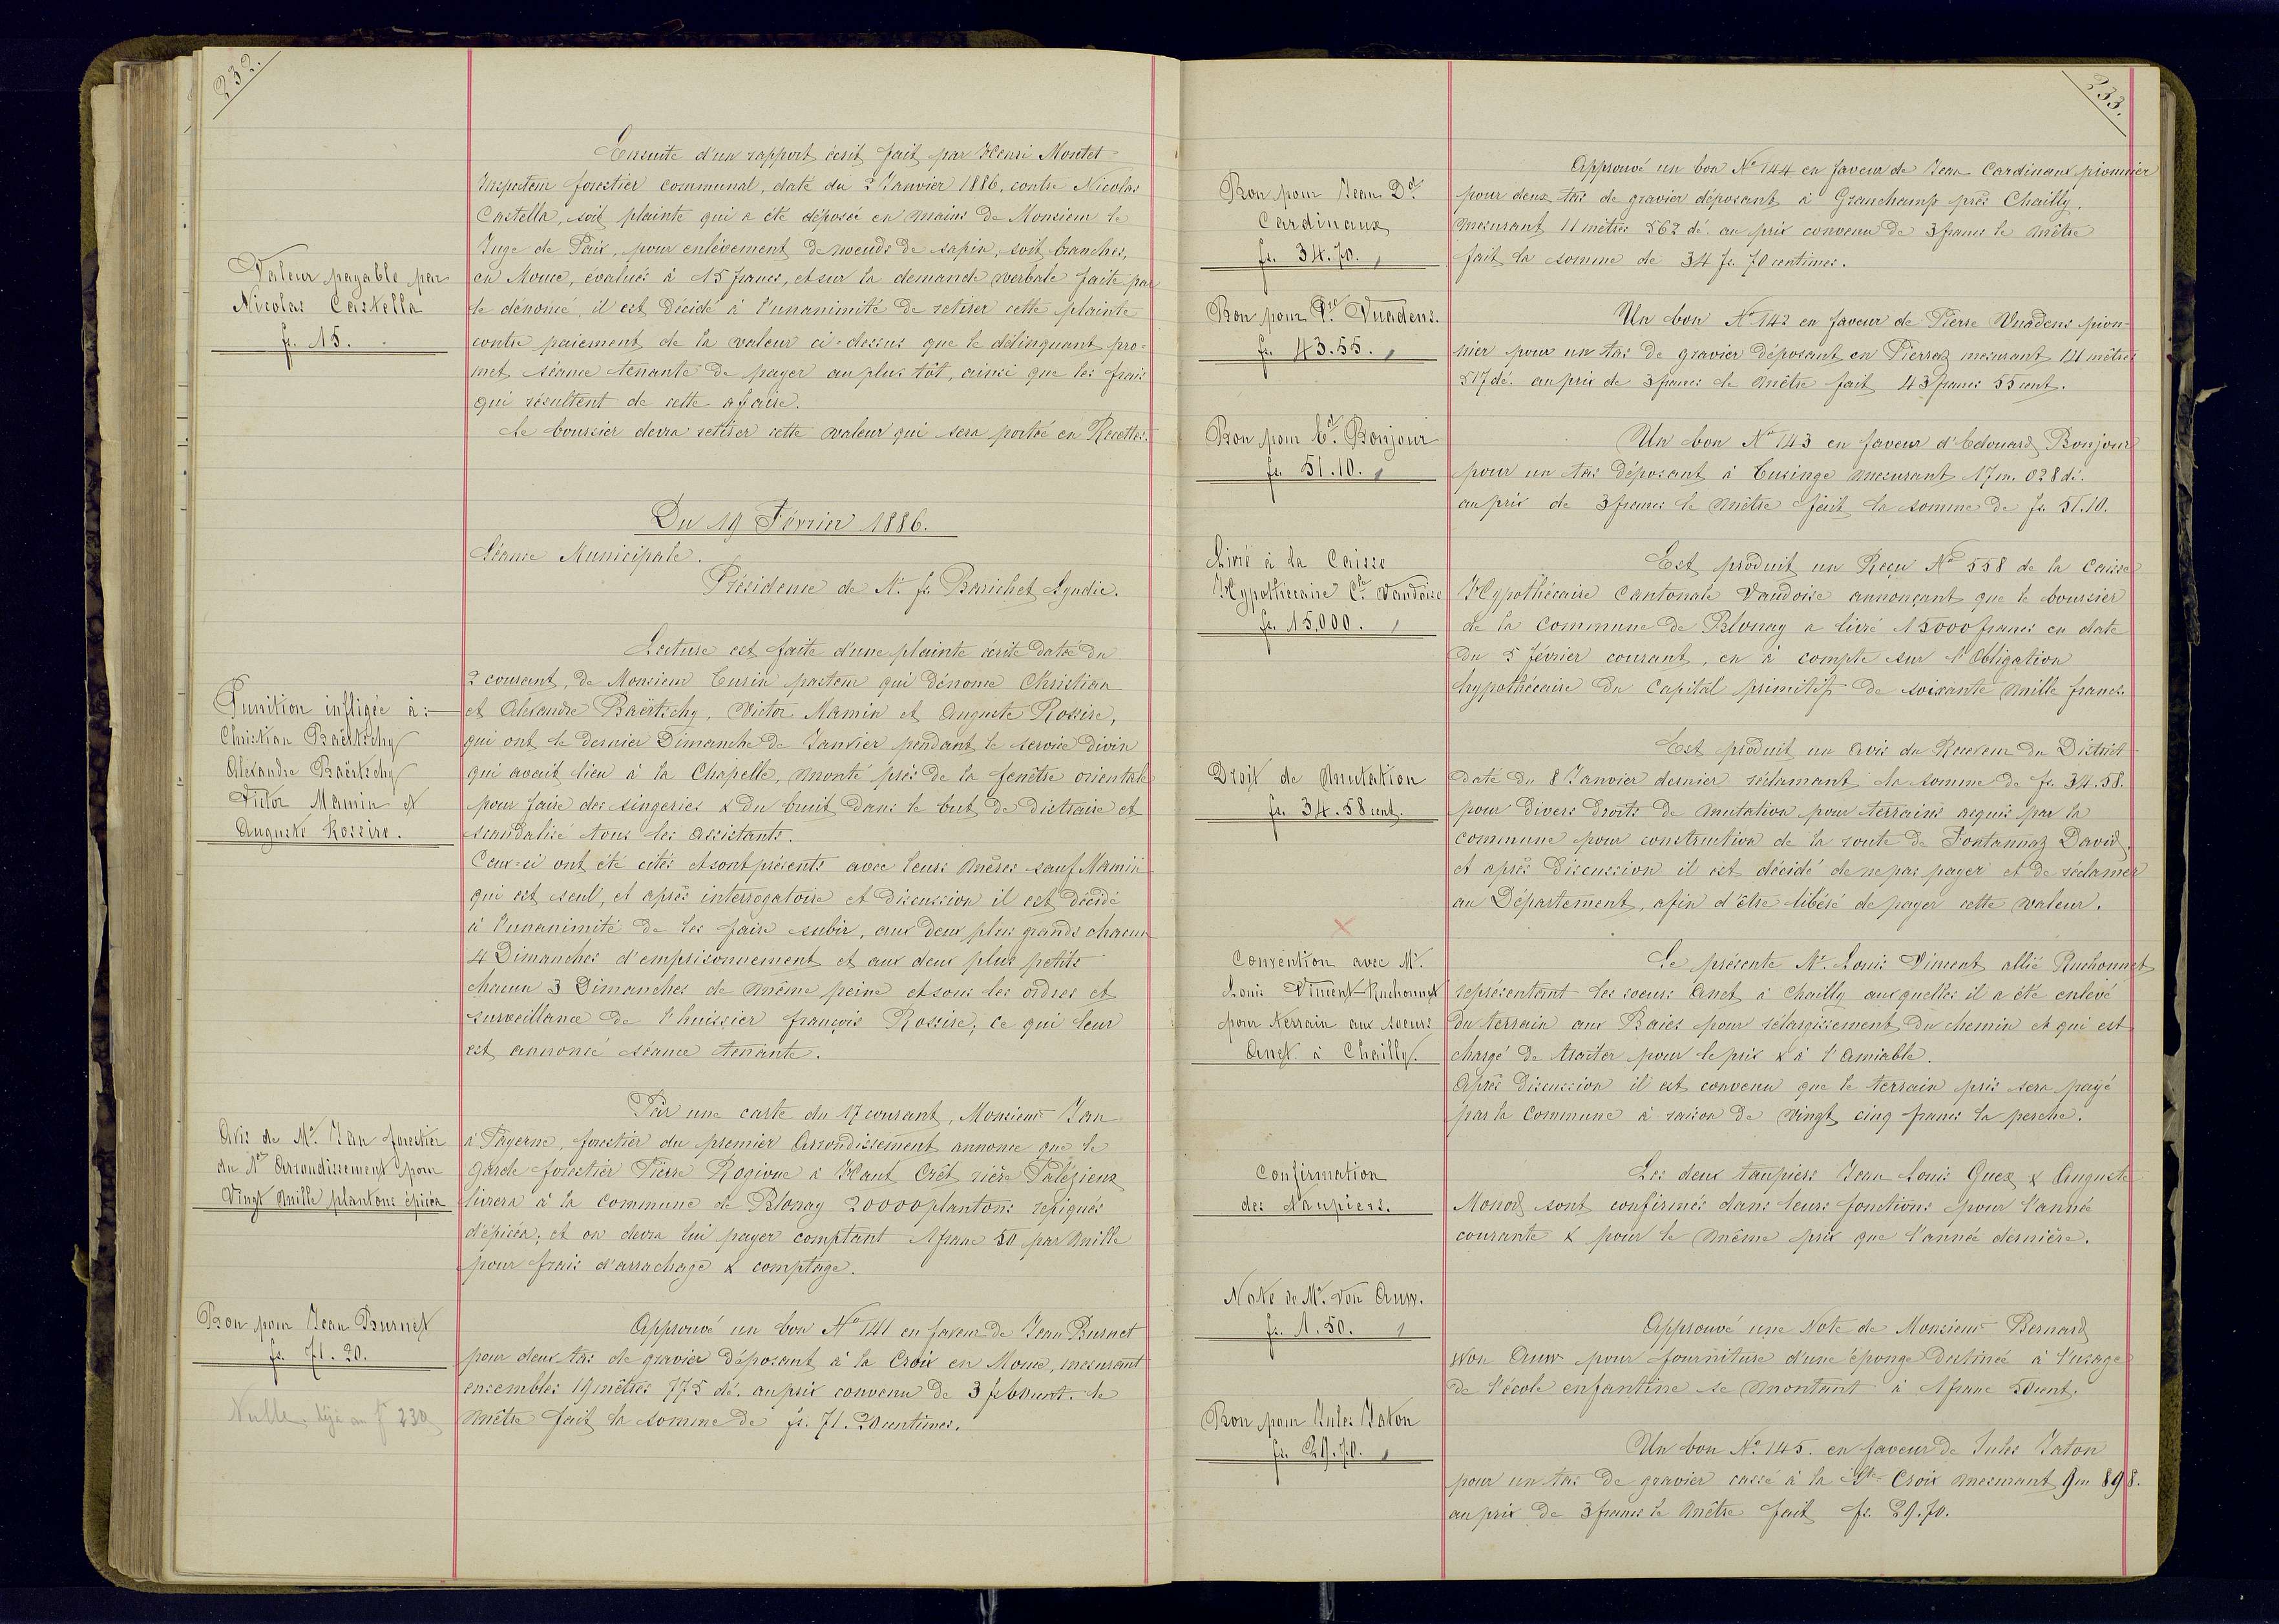 232.
Ensuite d'un rapport écrit fait par Henri Montet
Inspecteur forestier communal, daté du 2 Janvier 1886, contre Nicolas
Castella, soit plainte qui a été déposée en mains de Monsieur le
Juge de Paix, pour enlèvement de noeuds de sapin, soit branches,
Valeur payable par
Nicolas Castella
fr. 15.
en Mouce, évalués à 15 francs, et sur la demande verbale faite par
le dénoncé, il est décidé à l'unanimité de retirer cette plainte
contre paiement de la valeur ci-dessus que le délinquant pro=
met séance tenante de payer au plus tôt, ainsi que les frais
qui résultent de cette affaire.
Le boursier devra retirer cette valeur qui sera portée en Recettes.
Du 19 Février 1886.
Séance Municipale.
Présidence de M. fs. Barichet Syndic.
Lecture est faite d'une plainte écrite datée du
2 courant, de Monsieur Cusin pasteur qui dénonce Christian
Punition infligée à:
Christian Baërtschy
Alexandre Baërtschy
Victor Mamin et
Auguste Rossire.
et Alexandre Baërtschy, Victor Mamin et Auguste Rossire,
qui ont le dernier Dimanche de Janvier pendant le service divin
qui avait lieu à la Chapelle, monté près de la fenêtre orientale
pour faire des singeries & du bruit dans le but de distraire et
scandalisé tous les assistants.
Ceux-ci ont été cités et sont présents avec leurs mères sauf Mamin
qui est seul, et après interrogatoire et discussion il est décidé
à l'unanimité de les faire subir, aux deux plus grands chacun
4 Dimanches d'emprisonnement et aux deux plus petits
chacun 3 Dimanches de même peine et sous les ordres et
surveillance de l'huissier françois Rossire; ce qui leur
est annoncé séance tenante.
Par une carte du 17 courant, Monsieur Jan
Avis de Mr. Jan forestier
du 1er Arrondissement pour
Vingt mille plantons épicéa
à Payerne, forestier du premier Arrondissement annonce que le
garde forestier Pierre Rogivue à Haut Crêt rière Palézieux
livrera à la Commune de Blonay 20000 plantons repiqués
d'épicéa; et on devra lui payer comptant 1 franc 50 par mille
pour frais d'arrachage & comptage.
Bon pour Jean Burnet
fr. 71.20.
Nulle, déjà au fo 230
Approuvé un bon No 141 en faveur de Jean Burnet
pour deux tas de gravier déposant à la Croix en Mouce, mesurant
ensembles 19 mètres 775 dé. au prix convenu de 3 fr 60 cent. le
mètre fait la somme de fr. 71.20 centimes.
233.
Bon pour Jean Dd.
Cardinaux
fr. 34.70.
Approuvé un bon No 144 en faveur de Jean Cardinaux pionnier
pour deux tas de gravier déposant à Granchamp près Chailly,
mesurant 11 mètres 562 dé. au prix convenu de 3 francs le mètre
fait la somme de 34 fr. 70 centimes.
Bon pour Pre. Vuadens.
fr. 43.55.
Un bon No 142 en faveur de Pierre Vuadens pion-
nier pour un tas de gravier déposant en Pierraz mesurant 14 mètres
517 dé. au prix de 3 francs le mètre fait 43 francs 55 cent.
Bon pour Ed. Bonjour
fr. 51.10.
Un bon No 143 en faveur d'Edouard Bonjour
pour un tas déposant à Cusinge mesurant 17 m. 028 dé.
au prix de 3 francs le mètre fait la somme de fr. 51.10.
Livré à la Caisse
Hypothécaire Cle Vaudoise
fr. 15,000.
Est produit un Reçu No 558 de la Caisse
Hypothécaire Cantonale Vaudoise annonçant que le boursier
de la Commune de Blonay a livré 15000 francs en date
du 5 février courant, en à compte sur l'Obligation
hypothécaire du Capital primitif de soixante mille francs.
Droit de Mutation
fr. 34.58 cent.
Est produit un avis du Receveur du District
daté du 8 Janvier dernier réclamant la somme de fr. 34.58.
pour divers droits de mutation pour terrains acquis par la
commune pour construction de la route de Fontannaz David,
et après discussion il est décidé de ne pas payer et de réclamer
au Département, afin d'être libéré de payer cette valeur.
Convention avec Mr.
Louis Vincent-Ruchonnet
pour terrain aux soeurs
Anet à Chailly.
Se présente Mr. Louis Vincent allié Ruchonnet
représentant les soeurs Anet à Chailly auxquelles il a été enlevé
du terrain aux Baies pour rélargissement du chemin et qui est
chargé de traiter pour le prix & à l'amiable.
Après discussion il est convenu que le terrain pris sera payé
par la Commune à raison de vingt cinq francs la perche.
Confirmation
des taupiers.
Les deux taupiers Jean Louis Quex & Auguste
Monod sont confirmés dans leurs fonctions pour l'année
courante & pour le même prix que l'année dernière.
Note de Mr. Von Auw.
fr. 1.50.
Approuvé une Note de Monsieur Bernard
Von Auw pour fourniture d'une éponge destinée à l'usage
de l'école enfantine se montant à 1 franc 50 cent.
Bon pour Jules Jaton
fr. 29.70.
Un bon No 145. en faveur de Jules Jaton
pour un tas de gravier cassé à la Ste Croix mesurant 9 m 898.
au prix de 3 francs le mètre fait fr. 29.70.